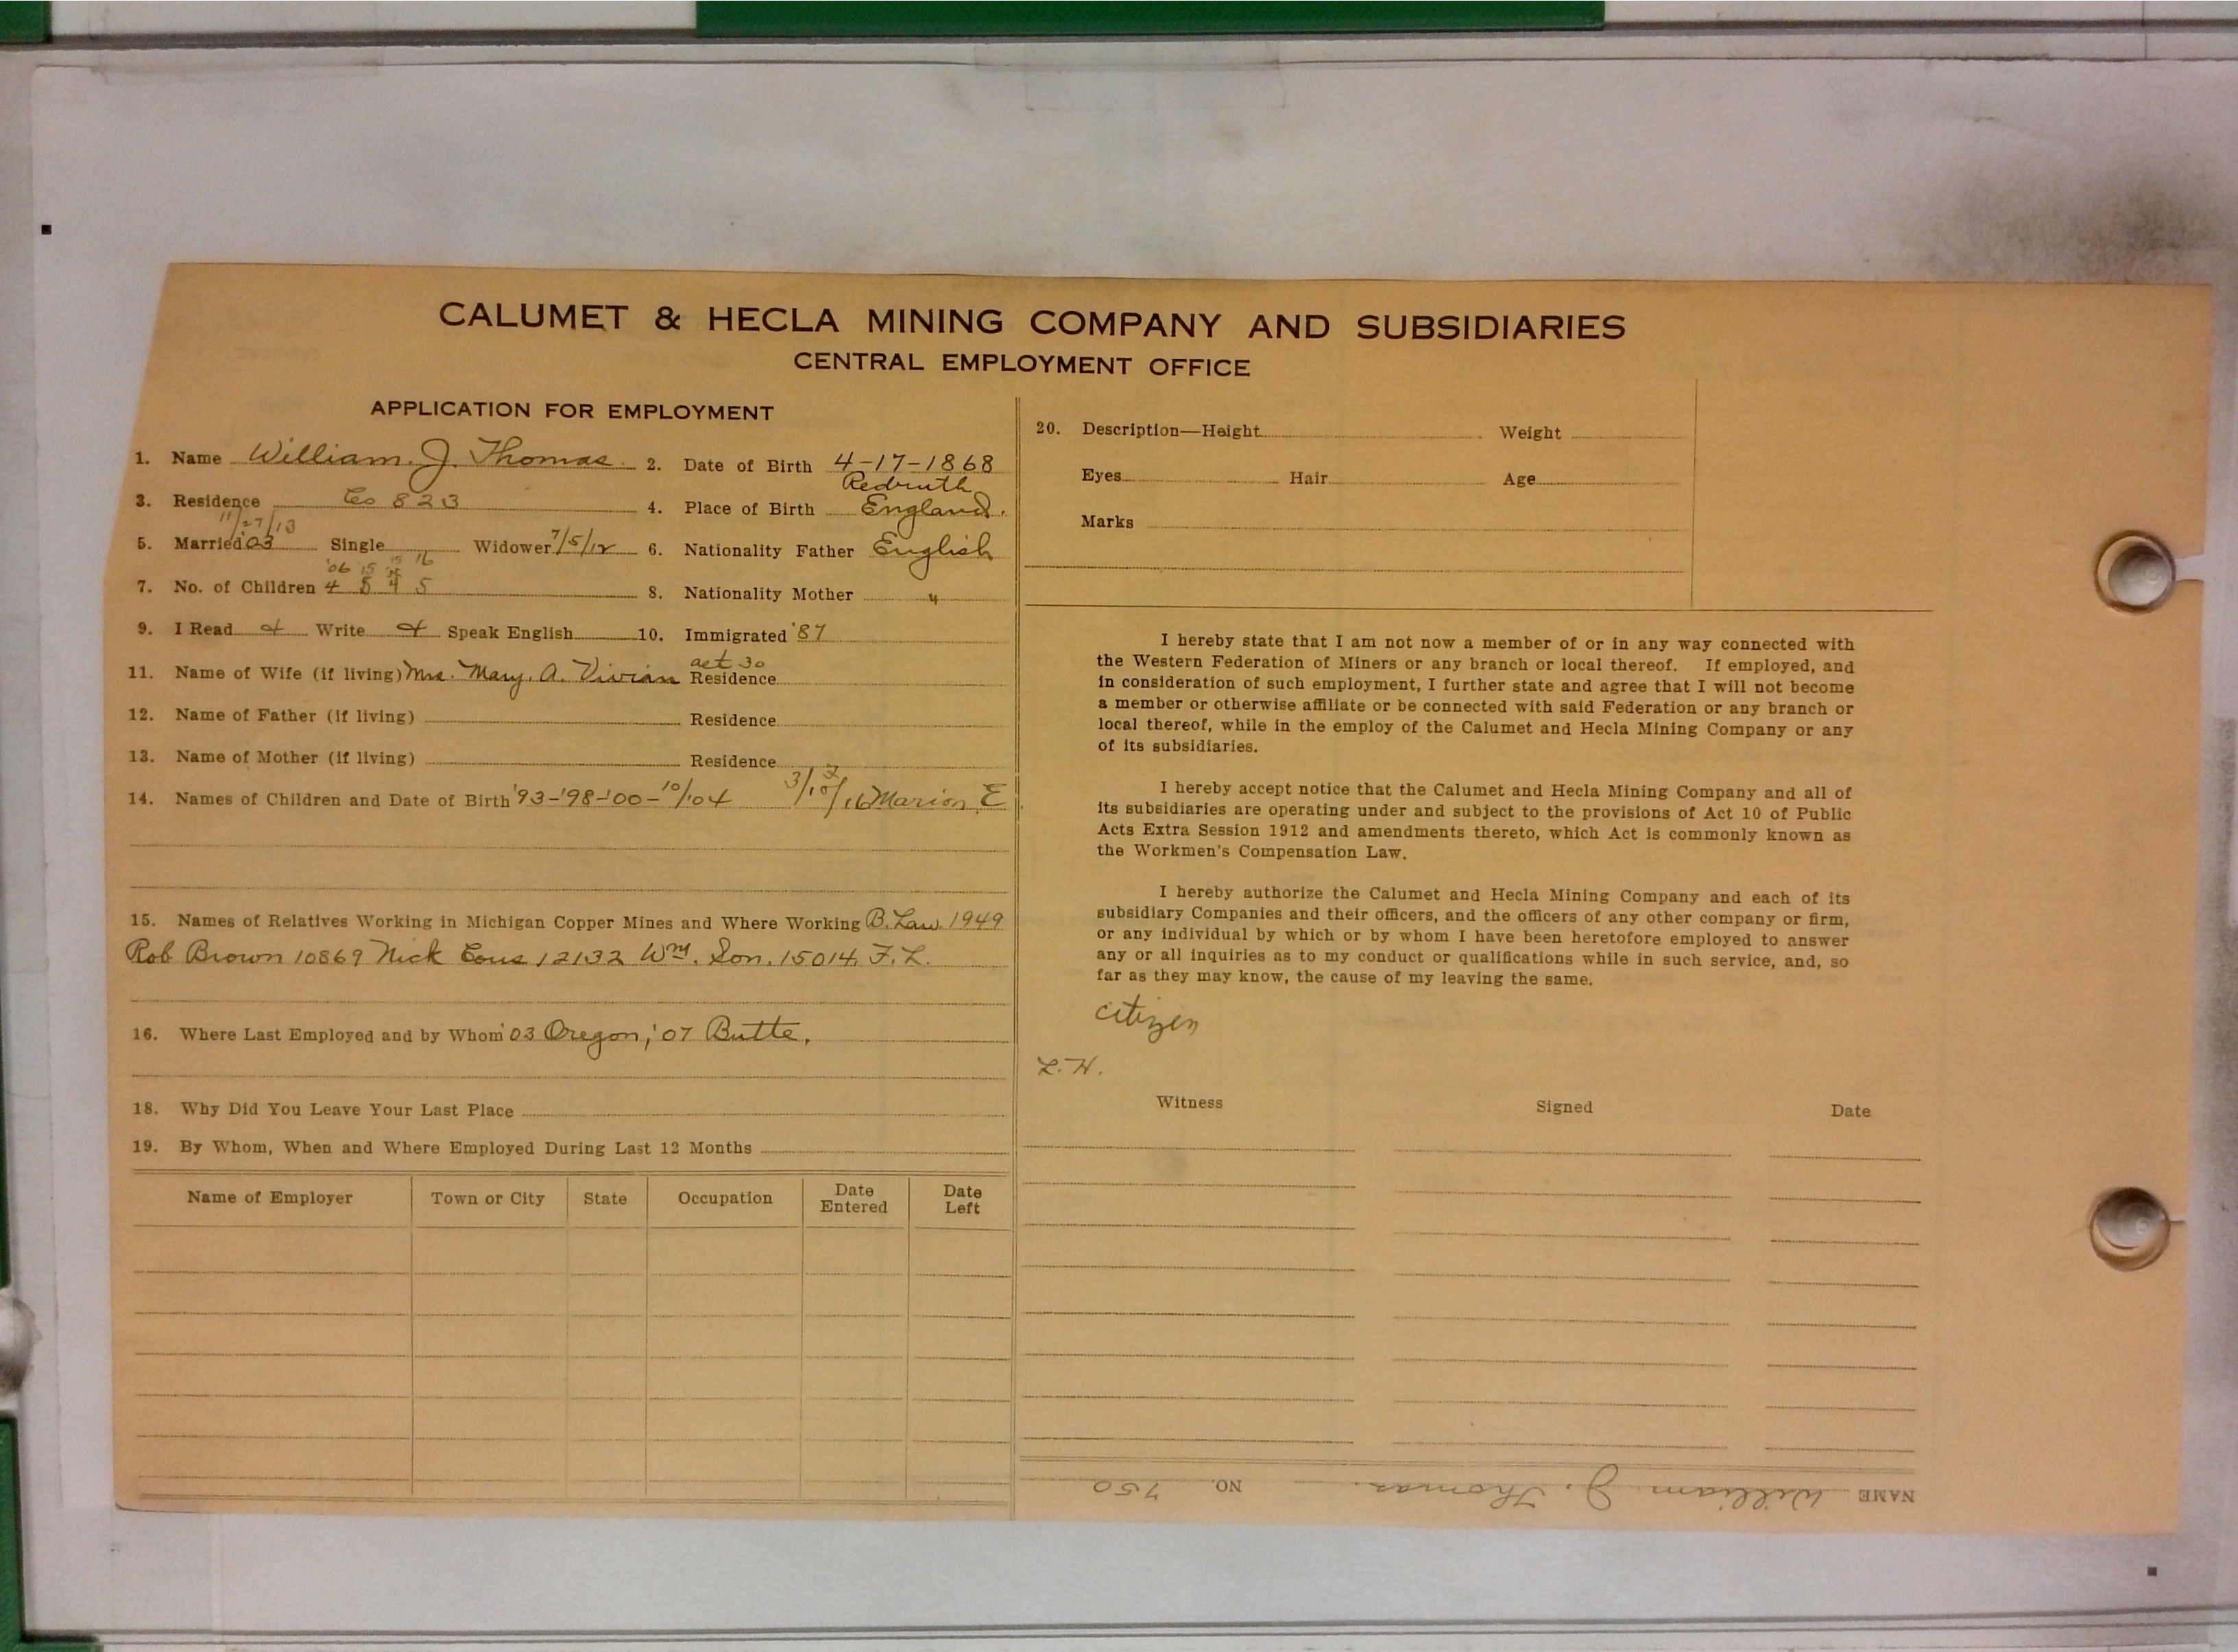 CALUMET & HECLA MINING COMPANY AND SUBSIDIARIES
CENTRAL EMPLOYMENT OFFICE
APPLICATION FOR EMPLOYMENT
1. Name William. J. Thomas. 2. Date of Birth 4-17-1868
Redruth
3. Residence Co 823 4. Place of Birth England.
11/27/13
5. Married '03 Single Widower 7/5/12 6. Nationality Father English
'06 15 15 16
7. No. of Children 4 5 4 5 8. Nationality Mother "
9. I Read & Write & Speak English 10. Immigrated '87
aet 30
11. Name of Wife (if living) Mrs. Mary. A. Vivian Residence
12. Name of Father (if living) Residence
13. Name of Mother (if living) Residence
14. Names of Children and Date of Birth '93-'98-'00-10/04 3/10/16 Marion E
15. Names of Relatives Working in Michigan Copper Mines and Where Working B. Law. 1949
Rob Brown 10869 Nick Cous 12132 Wm. Son. 15014. F. L.
16. Where Last Employed and by Whom '03 Oregon; '07 Butte.
18. Why Did You Leave Your Last Place
19. By Whom, When and Where Employed During Last 12 Months
Name of Employer Town or City State Occupation Date Entered Date Left
20. Description—Height Weight
Eyes Hair Age
Marks
I hereby state that I am not now a member of or in any way connected with
the Western Federation of Miners or any branch or local thereof. If employed, and
in consideration of such employment, I further state and agree that I will not become
a member or otherwise affiliate or be connected with said Federation or any branch or
local thereof, while in the employ of the Calumet and Hecla Mining Company or any
of its subsidiaries.
I hereby accept notice that the Calumet and Hecla Mining Company and all of
its subsidiaries are operating under and subject to the provisions of Act 10 of Public
Acts Extra Session 1912 and amendments thereto, which Act is commonly known as
the Workmen's Compensation Law.
I hereby authorize the Calumet and Hecla Mining Company and each of its
subsidiary Companies and their officers, and the officers of any other company or firm,
or any individual by which or by whom I have been heretofore employed to answer
any or all inquiries as to my conduct or qualifications while in such service, and, so
far as they may know, the cause of my leaving the same.
citizen
L. H.
Witness Signed Date
NAME William J. Thomas. NO. 750